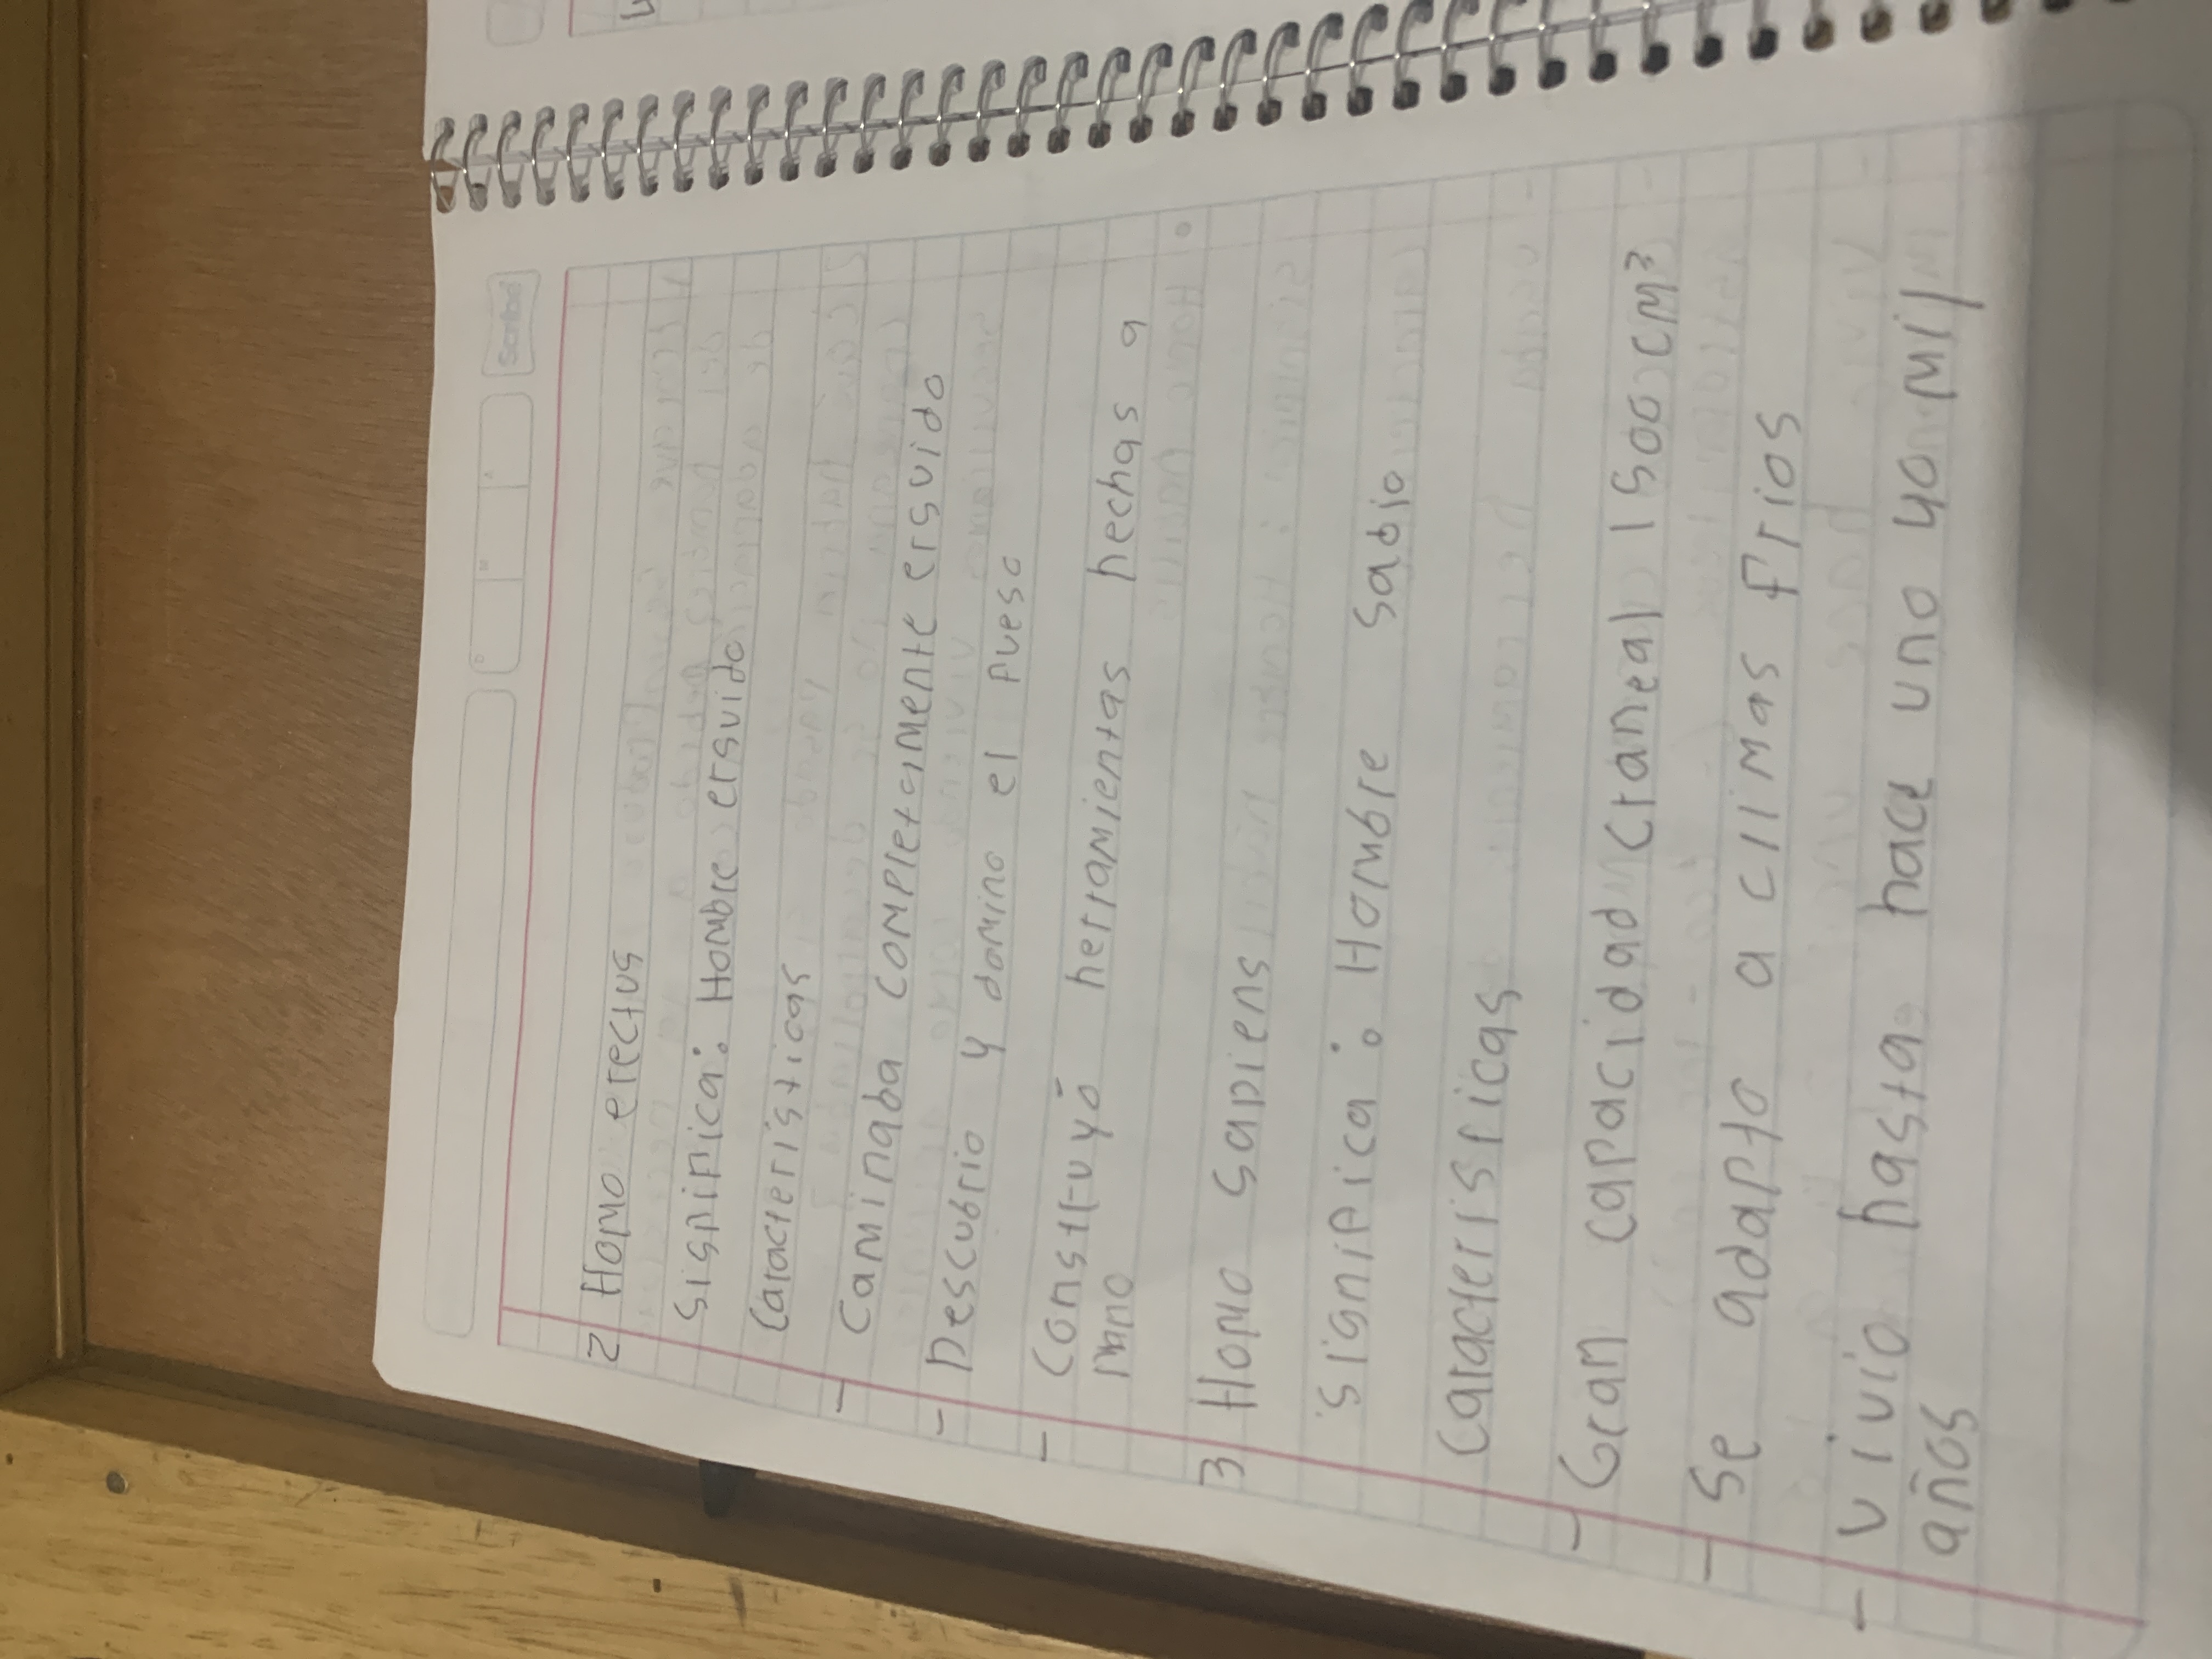 Scribe
2 Homo erectus
Significa: Hombre ersuido
Caracteristicas
- Caminaba completamente ersuido
- Descubrio y domino el fueso
- Construyó herramientas hechas a
mano
3 Homo sapiens
significa: Hombre sabio
Caracteristicas
- Gran capacidad craneal 1500 cm³
- Se adapto a climas frios
- vivio hasta hace uno 40 mil
años